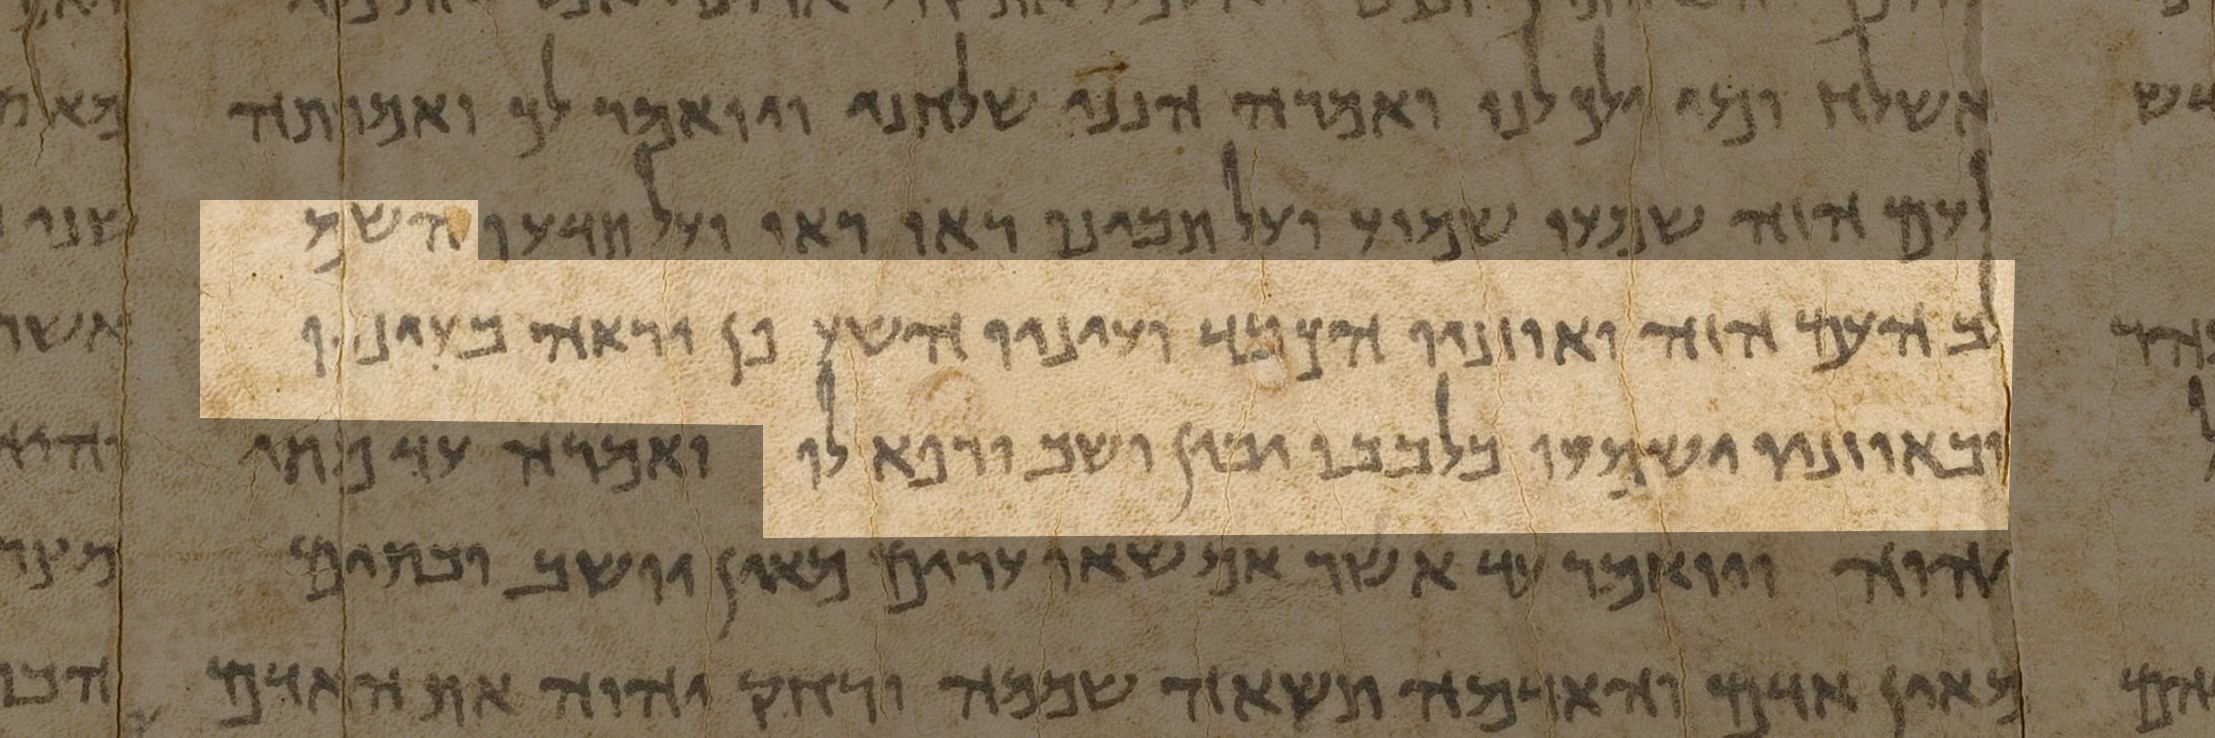 אשלח ומי ילך לנו ואמרה הנני שלחני ויואמר לך ואמרתה
לעם הזה שמעו שמוע ועל תבינו ראו ראו ועל תדעו השמ
לב העם הזה ואוזניו הכבד ועיניו השע פן יראה בעיניו
ובאוזניו ישמעו בלבבו יבין ושב ורפא לו ואמרה עד מתי
יהוה ויואמר עד אשר אם שאו ערים מאין יושב ובתים
מאין אדם והאדמה תשאה שממה ורחק יהוה את האדם